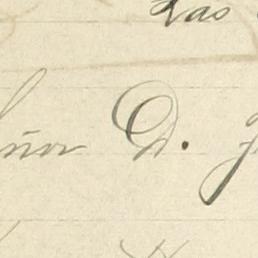 Las
ñor D. J